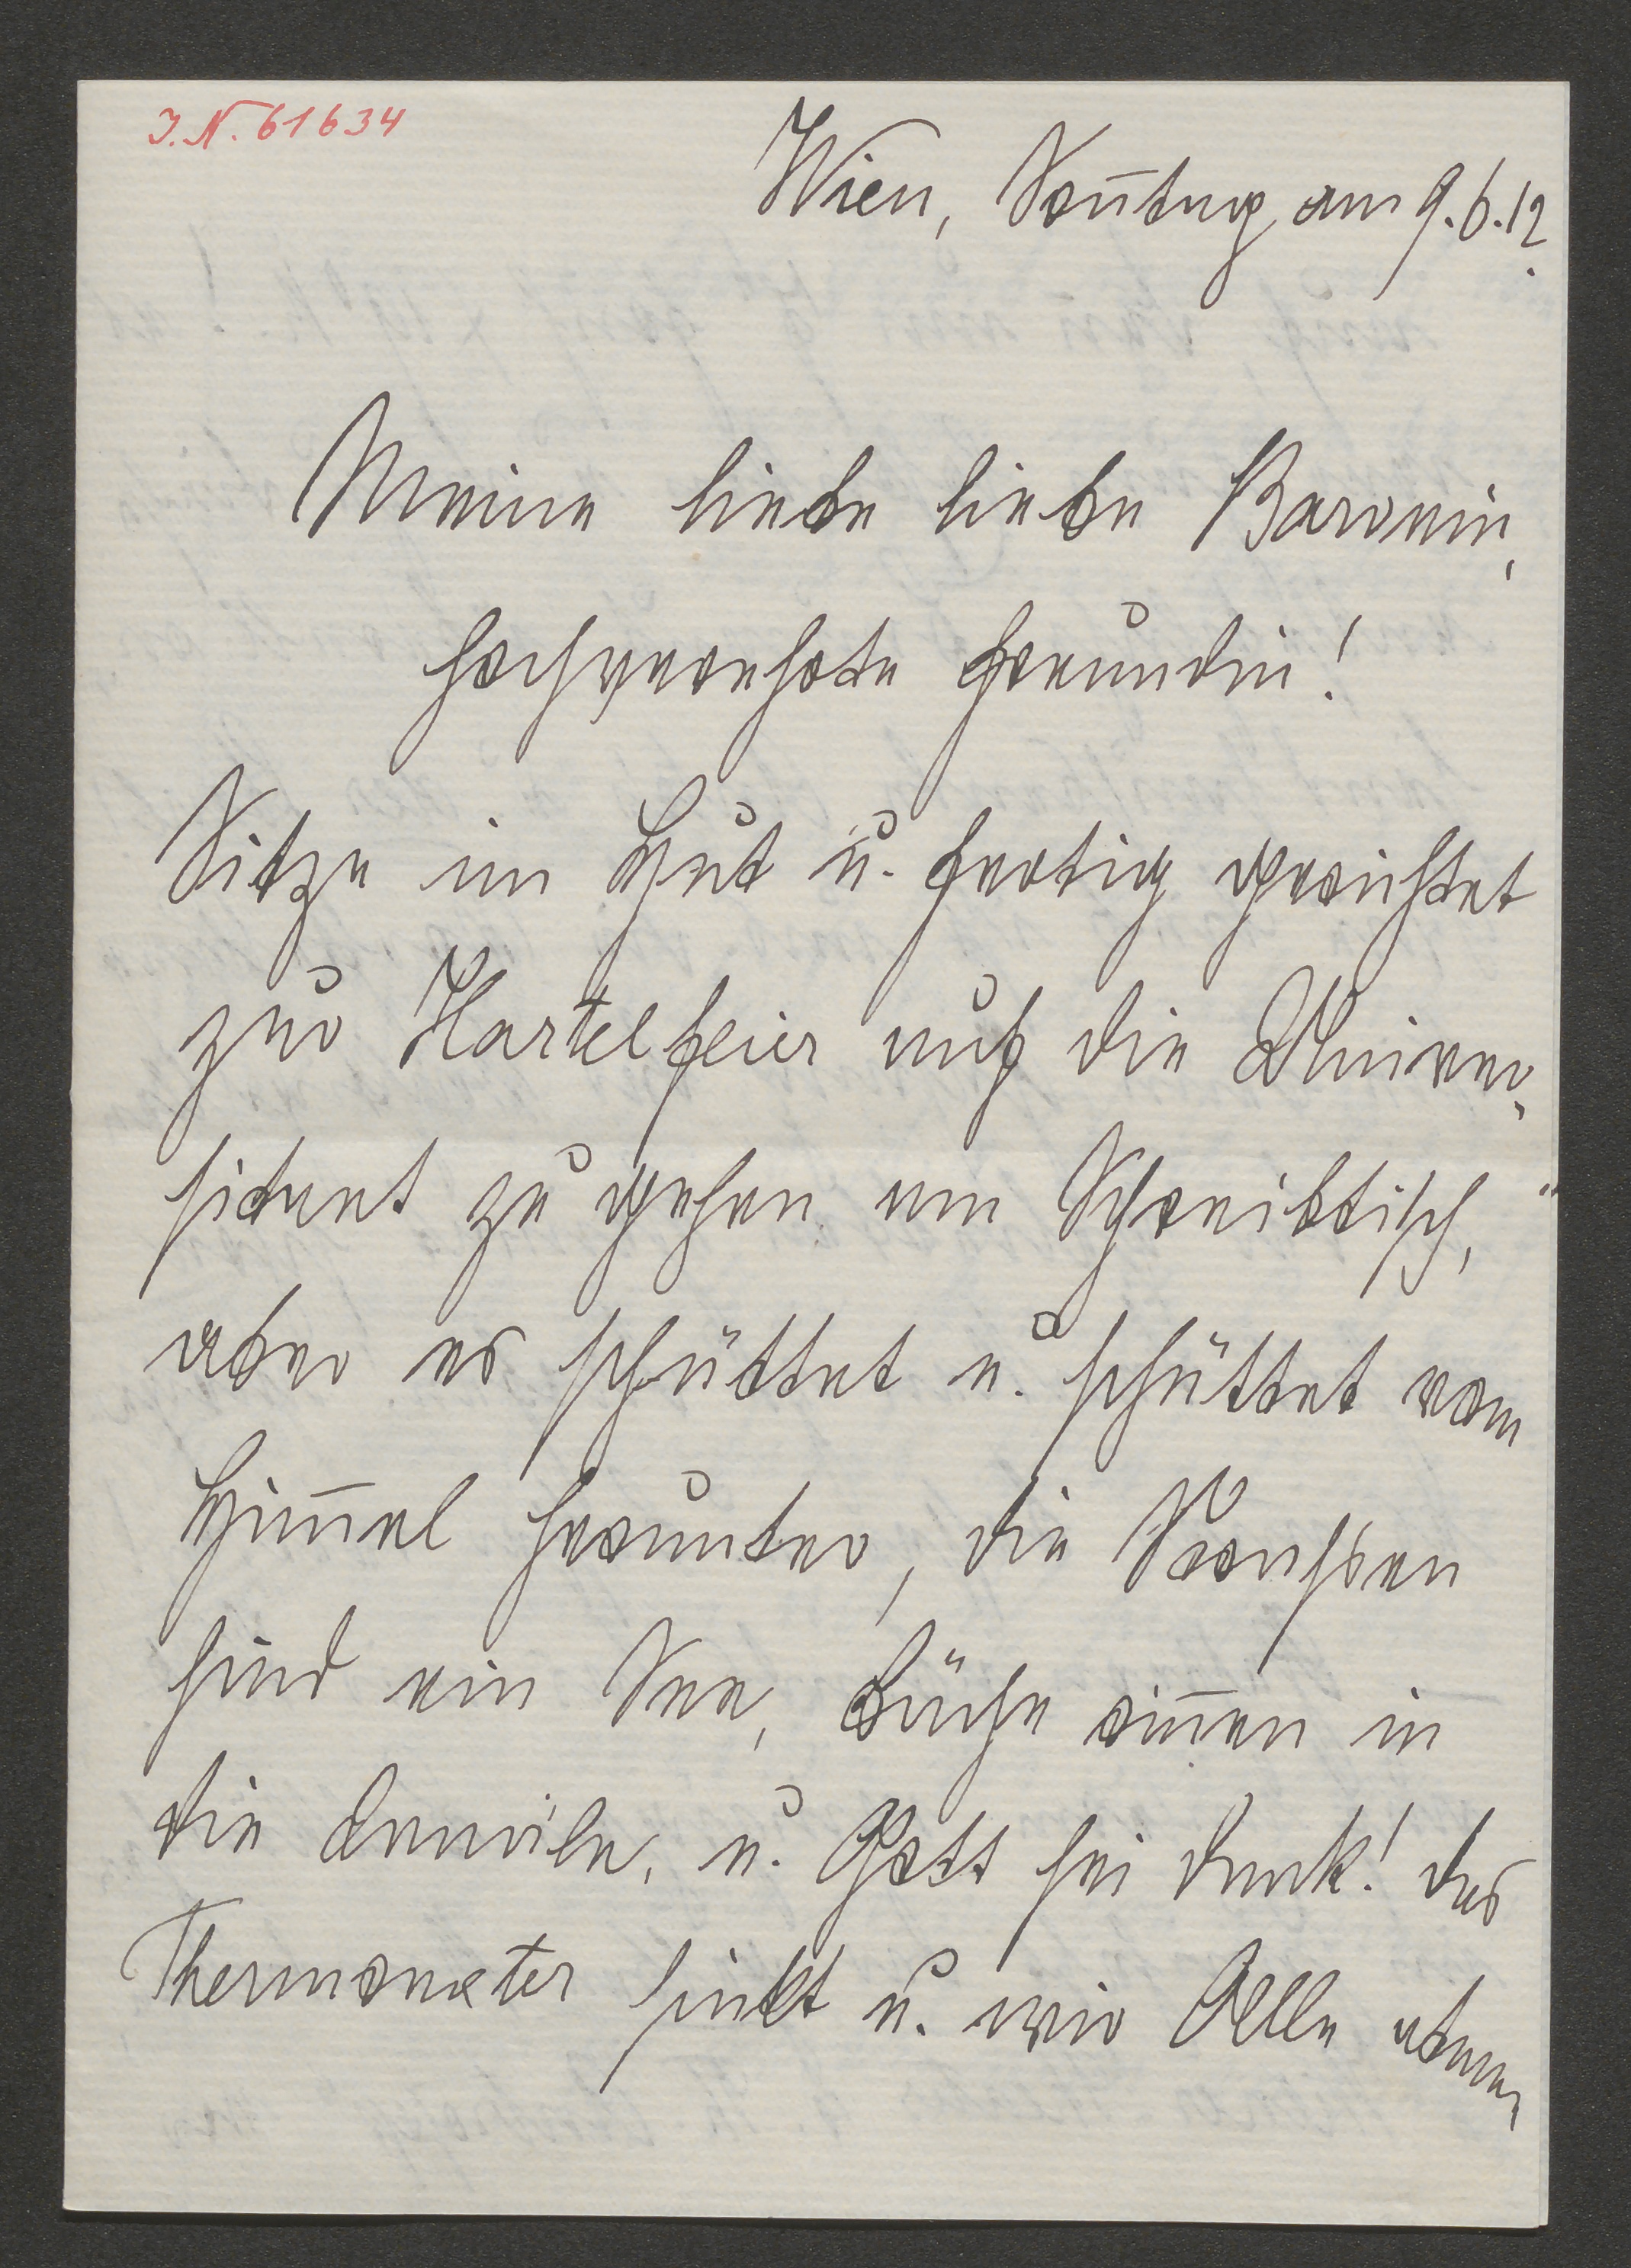 J.N. 61634
Wien, Soñtag am 9.6.12.
Meine liebe liebe Baronin,
hochverehrte Freundin!
Sitze im Hut u. fertig gerichtet
zur Hartelfeier auf die Univer-
sitaet zu gehen am Schreibtisch,
aber es schüttet u. schüttet vom
Him̄el herunter, die Strassen
sind ein See, Bäche rin̄en in
die Canäle, u. Gott sei Dank! das
Thermometer sinkt u. wir Alle atmen